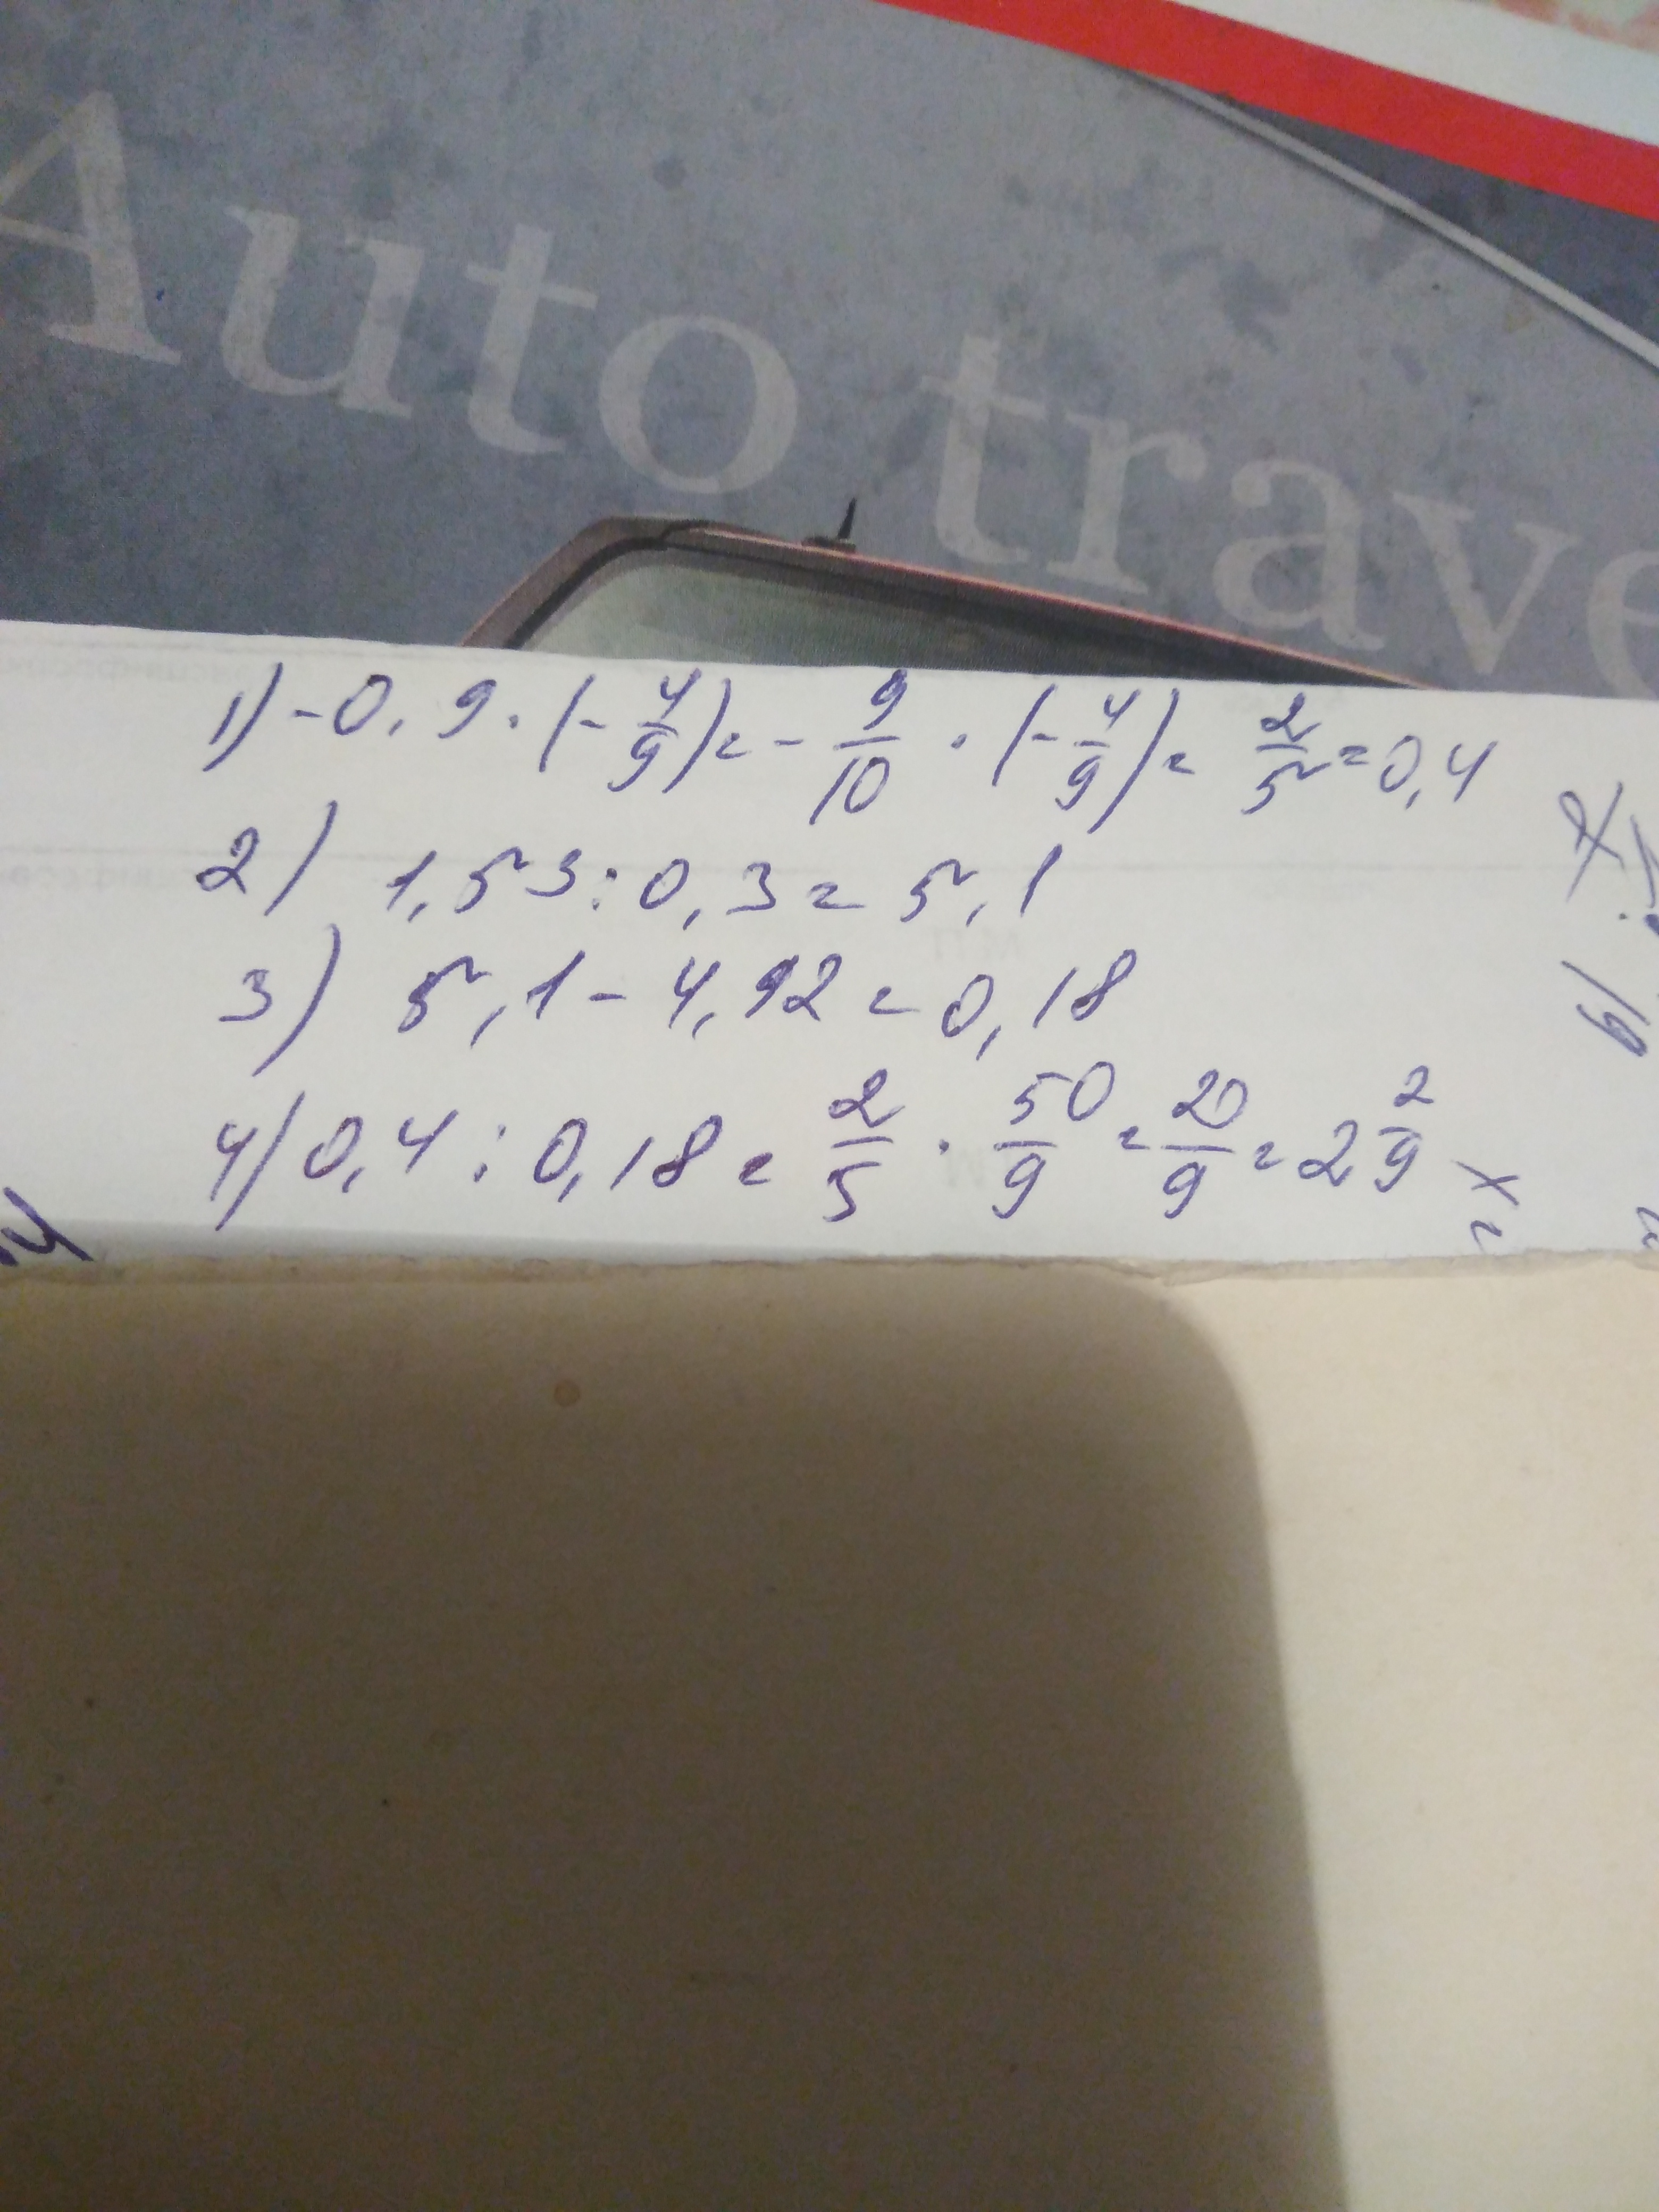 Auto trave
1) -0,9 · (-4/9) = -9/10 · (-4/9) = 2/5 = 0,4
2) 1,53 : 0,3 = 5,1
3) 5,1 - 4,92 = 0,18
4) 0,4 : 0,18 = 2/5 · 50/9 = 20/9 = 2 2/9